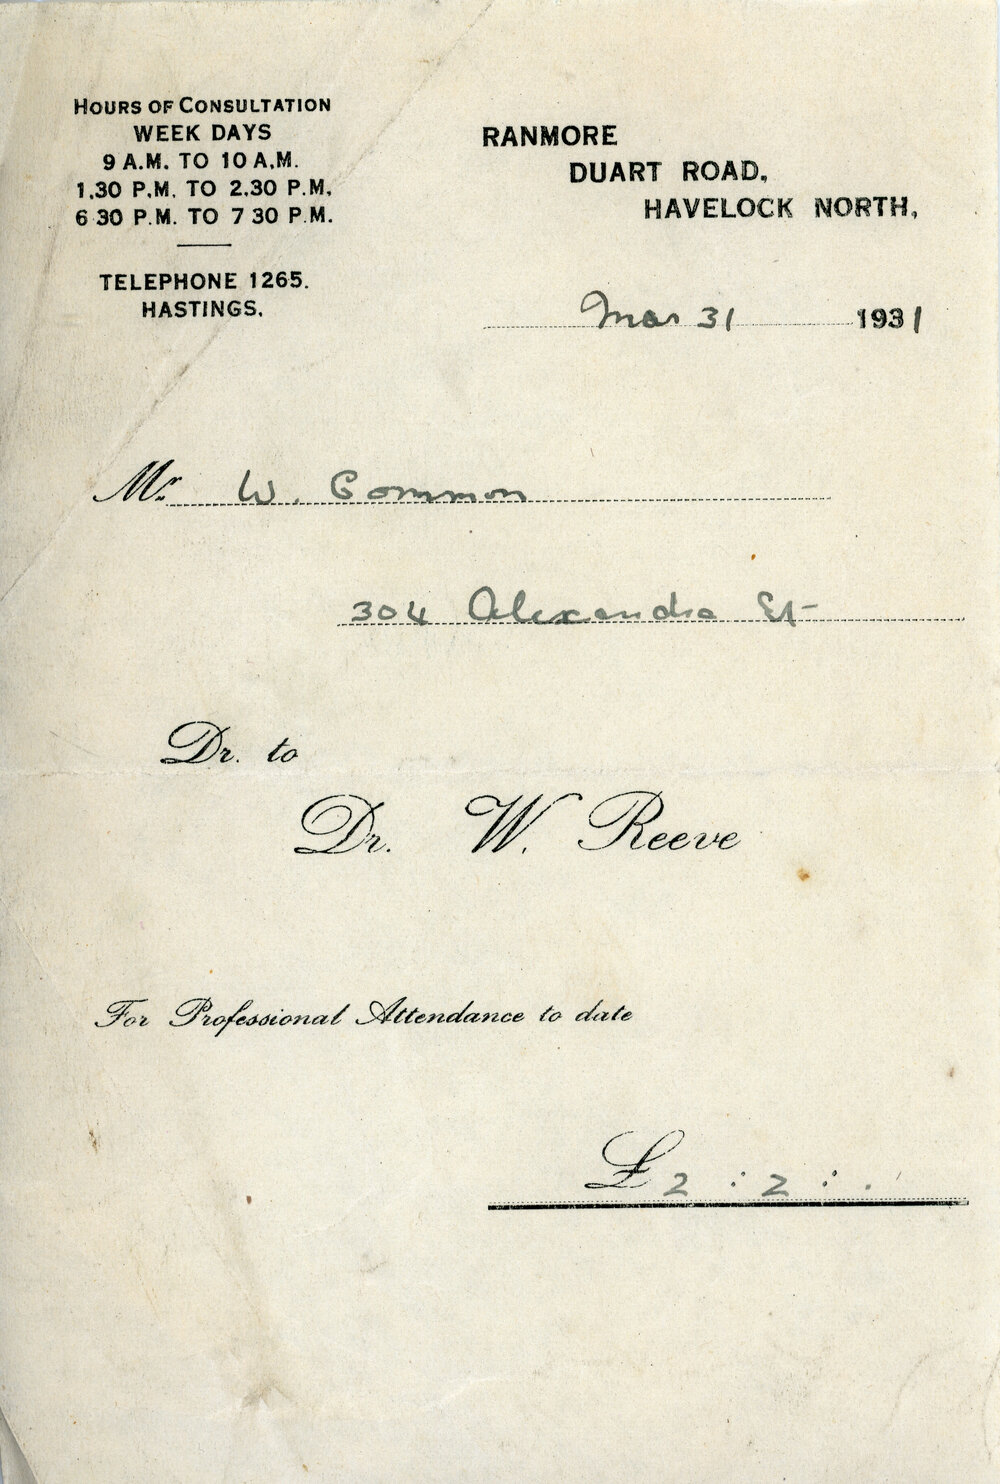 HOURS OF CONSULTATION
WEEK DAYS
9 A.M. TO 10 A.M.
1.30 P.M. TO 2.30 P.M.
6 30 P.M. TO 7 30 P.M.
TELEPHONE 1265.
HASTINGS.
RANMORE
DUART ROAD,
HAVELOCK NORTH,
Mar 31 1931
Mr W. Common
304 Alexandra St
Dr. to
Dr. W. Reeve
For Professional Attendance to date
£2 : 2 : .